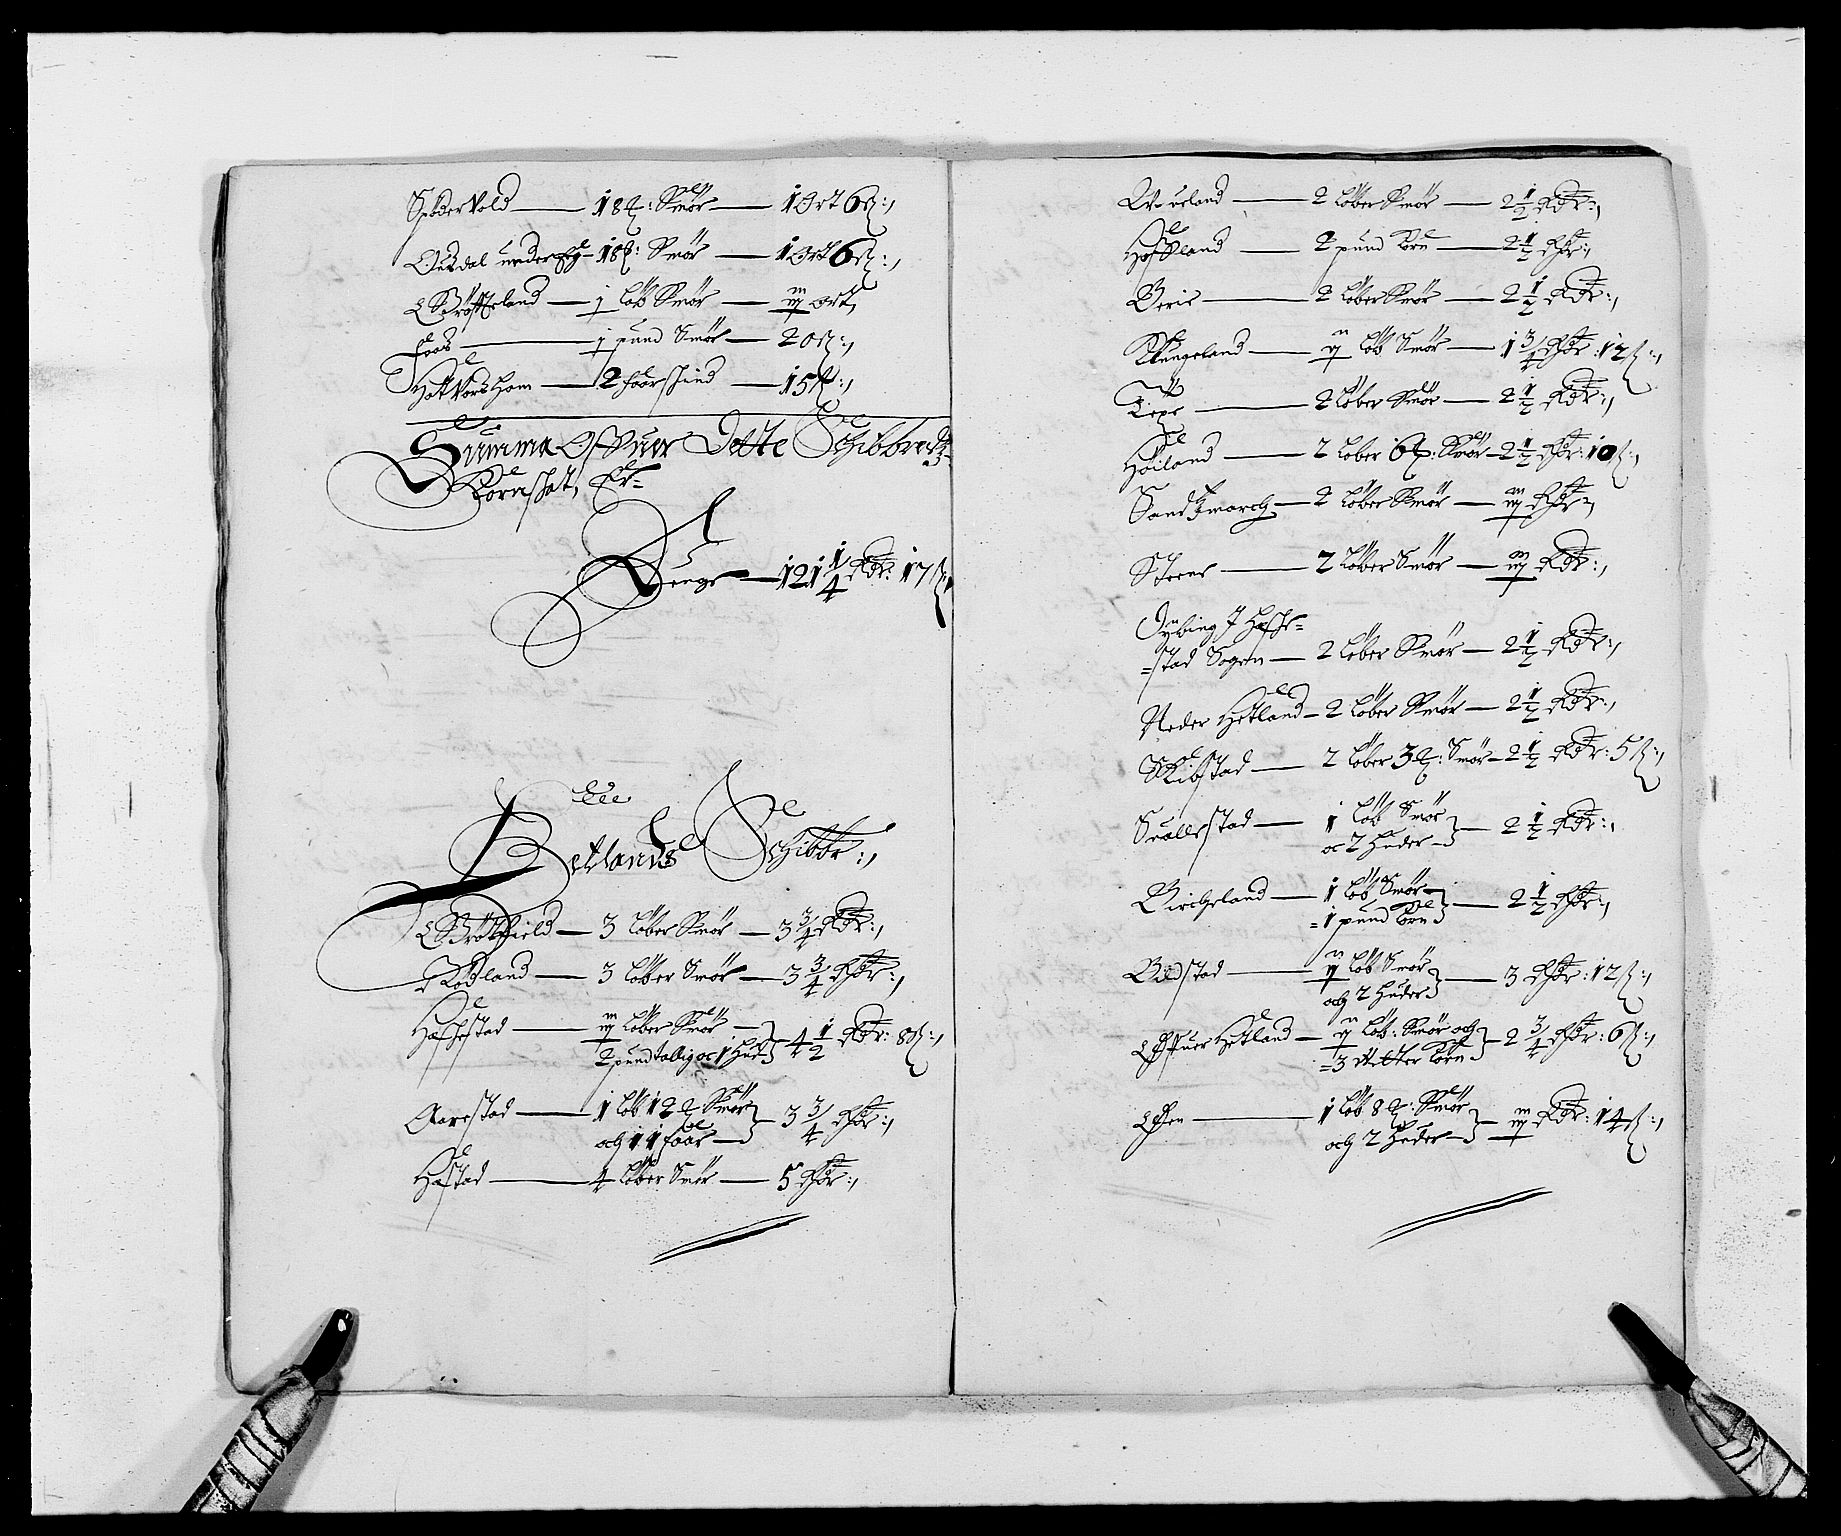 Spødervold — 18 ℔: Smør — 1 Ort 6 ß:,
Ousdal under Eg — 18 ℔: Smør — 1 Ort 6 ß:,
Grøtteland — j løb Smør — iij ort,
Foos — j pund Smør — 20 ß:,
Hatvorshom — 2 faarskind — 15 ß:,
Summa Offuer Dette Schibbreds
Kornskat, Er-
Penge — 121 1/4 Rdr: 17 ß
Hetlands Schibbr:,
Grøtfield — 3 løber Smør — 3 3/4 Rdr:,
Rødland — 3 løber Smør — 3 3/4 Rdr:,
Hæskestad — iij løber Smør —
2 pund tallig oc 1 hud — 4 1/2 Rdr: 8 ß:,
Aarestad — 1 løb 12 ℔ Smør
och 11 faar — 3 3/4 Rdr:,
Hæstad — 4 løber Smør — 5 Rdr:,
— 2 løber Smør — 2 1/2 Rdr:,
Hoffland — 2 pund korn — 2 1/2 Rdr:,
Birie — 2 løber Smør — 2 1/2 Rdr:,
Klungeland — ij løb Smør — 1 3/4 Rdr: 12 ß:,
— 2 løber Smør — 2 1/2 Rdr:,
Høiland — 2 løber 6 ℔: Smør — 2 1/2 Rdr: 10 ß:,
Sandsmarch — 2 løber Smør — iij Rdr:,
Steene — 2 løber Smør — iij Rdr:,
Dybing J Hæske-
-stad Sogen — 2 løber Smør — 2 1/2 Rdr:,
Neder Hetland — 2 løber Smør — 2 1/2 Rdr:,
Skibstad — 2 løber 3 ℔: Smør — 2 1/2 Rdr: 5 ß:,
Suallestad — 1 løb Smør
oc 2 huder — 2 1/2 Rdr:,
Birckeland — 1 løb Smør
- 1 pund korn — 2 1/2 Rdr:,
Bedstad — ij løb Smør
och 2 huder — 3 Rdr: 12 ß:,
Offuer Hetland — ij løb: Smør och
- 3 Setter korn — 2 3/4 Rdr: 6 ß:,
Øen — 1 løb 8 ℔: Smør
och 2 huder — iij Rdr: 14 ß:,